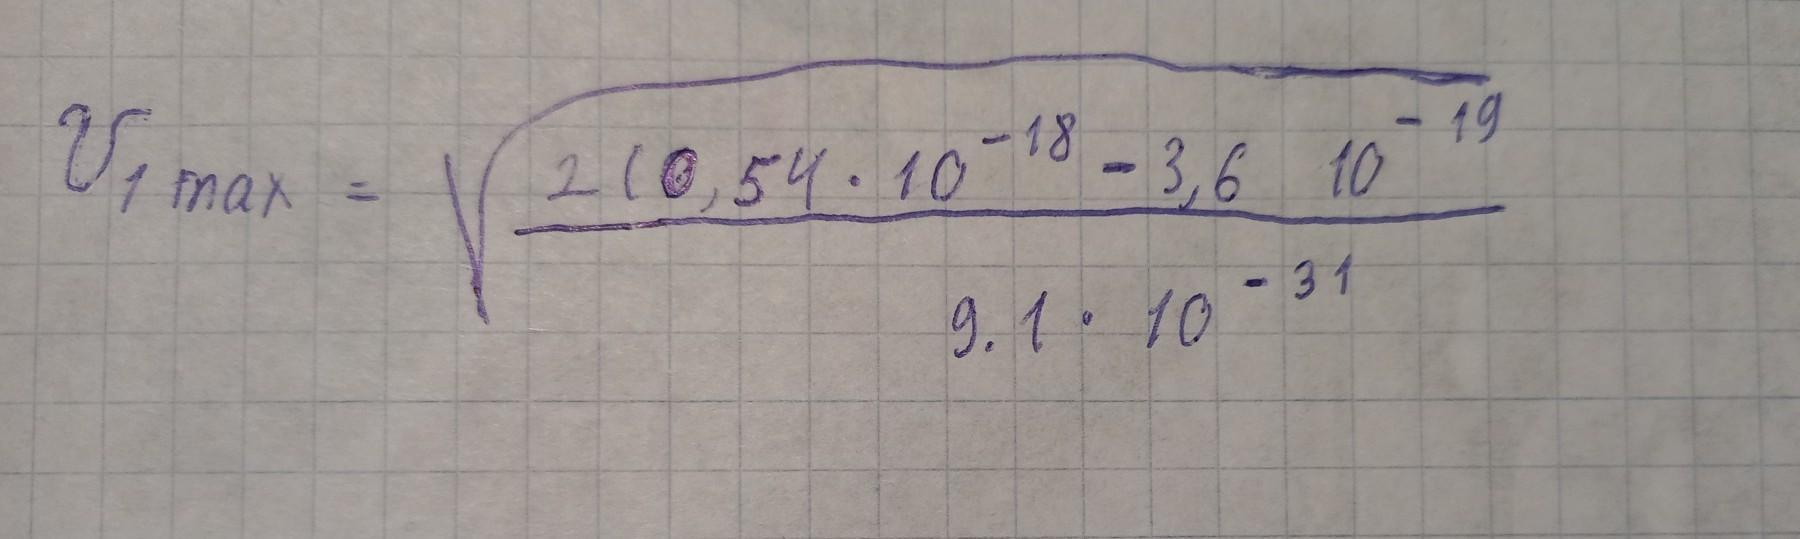 V₁ max = √(2(0,54 · 10⁻¹⁸ - 3,6 10⁻¹⁹ / 9.1 · 10⁻³¹